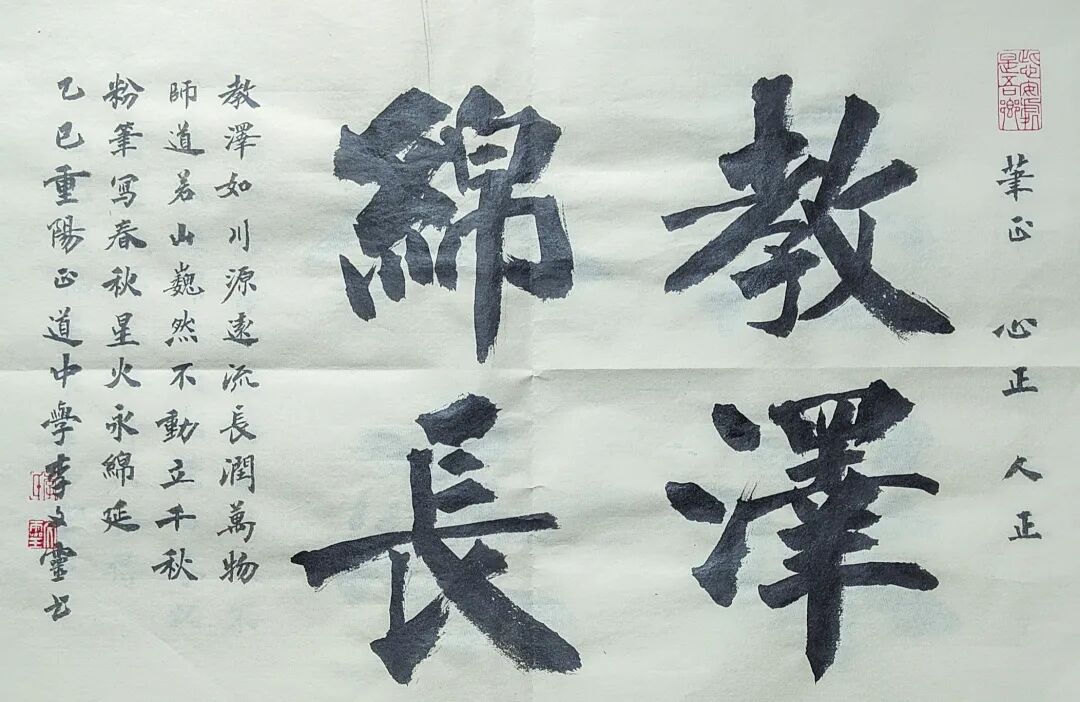 此心安處是吾鄉
筆正 心正 人正
教澤
綿長
教澤如川源遠流長潤萬物
師道若山巍然不動立千秋
粉筆写春秋星火永綿延
乙巳重陽正道中學李文靈书